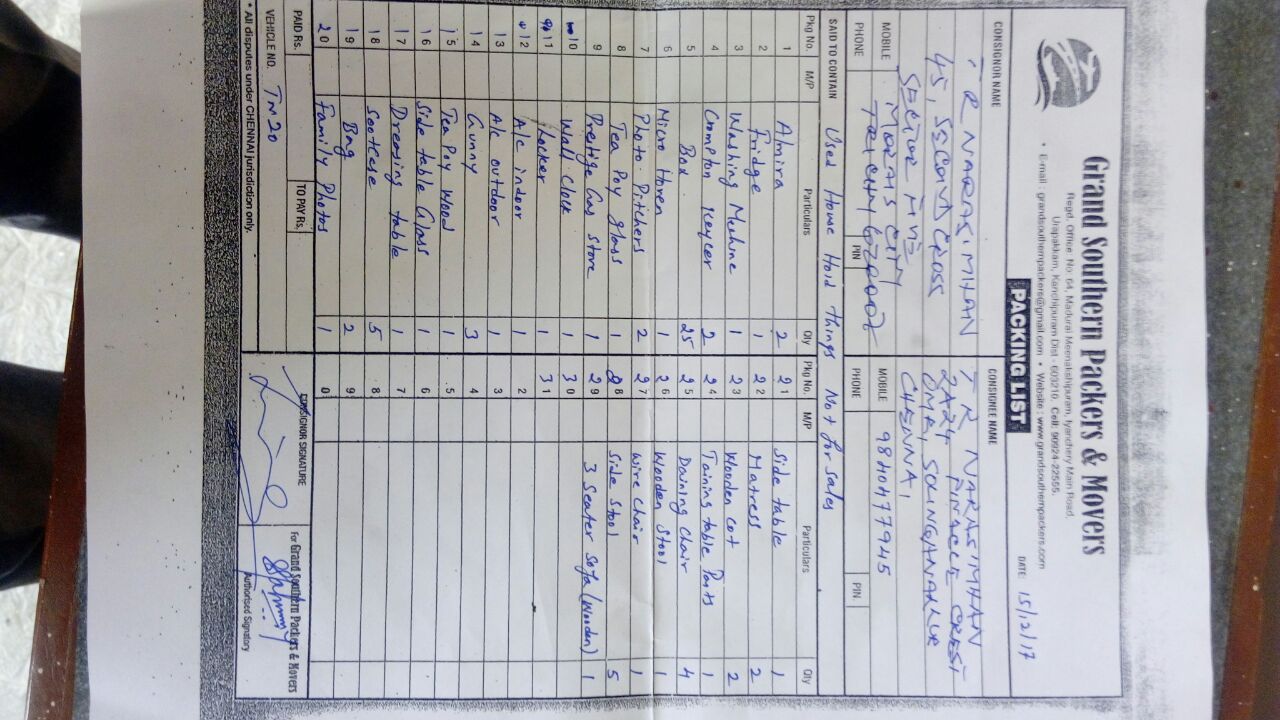 Grand Southern Packers & Movers
Regd. Office: No. 64, Madurai Meenakshipuram, Iyanchery Main Road,
Urapakkam, Kanchipuram Dist - 603210. Cell: 90924-22555.
• E-mail : grandsouthernpackers@gmail.com • Website : www.grandsouthernpackers.com
PACKING LIST
DATE: 15/12/17
CONSIGNOR NAME
T R NARASIMHAN
45, SECOND CROSS
SECTOR
MORAIS CITY
TRICHY 620007
MOBILE
PHONE
PIN
CONSIGNEE NAME
T R NARASIMHAN
2A24 PINACLE CREST
OMR, SOLINGANALLUR
CHENNAI
MOBILE 9840477945
PHONE
PIN
SAID TO CONTAIN Used House Hold things Not for sales
Pkg No. M/P Particulars Qty Pkg No. M/P Particulars Qty
1 Almira 2 21 Side table 1
2 Fridge 1 22 Matress 2
3 Washing Mechine 1 23 Wooden cot 2
4 Compton keycer 2 24 Taining table Parts 1
5 Box 25 25 Daining Chair 4
6 Micro Hoven 1 26 Wooden Stool 1
7 Photo Pitchers 2 27 wire chair 1
8 Tea Poy glass 1 28 Side Stool 5
9 Prestige Gas stove 1 29 3 Seater Sofa (wooden) 1
10 Wall clock 1 30
11 Locker 1 31
12 A/c indoor 1 2
13 A/c outdoor 1 3
14 Gunny 3 4
15 Tea Poy wood 1 5
16 Side table Glass 1 6
17 Dressing table 1 7
18 Sootcese 5 8
19 Bag 2 9
20 Family Photos 1 0
PAID Rs. TO PAY Rs.
VEHICLE NO. TN20
CONSIGNOR SIGNATURE
For Grand Southern Packers & Movers
Authorised Signatory
* All disputes under CHENNAI jurisdiction only.